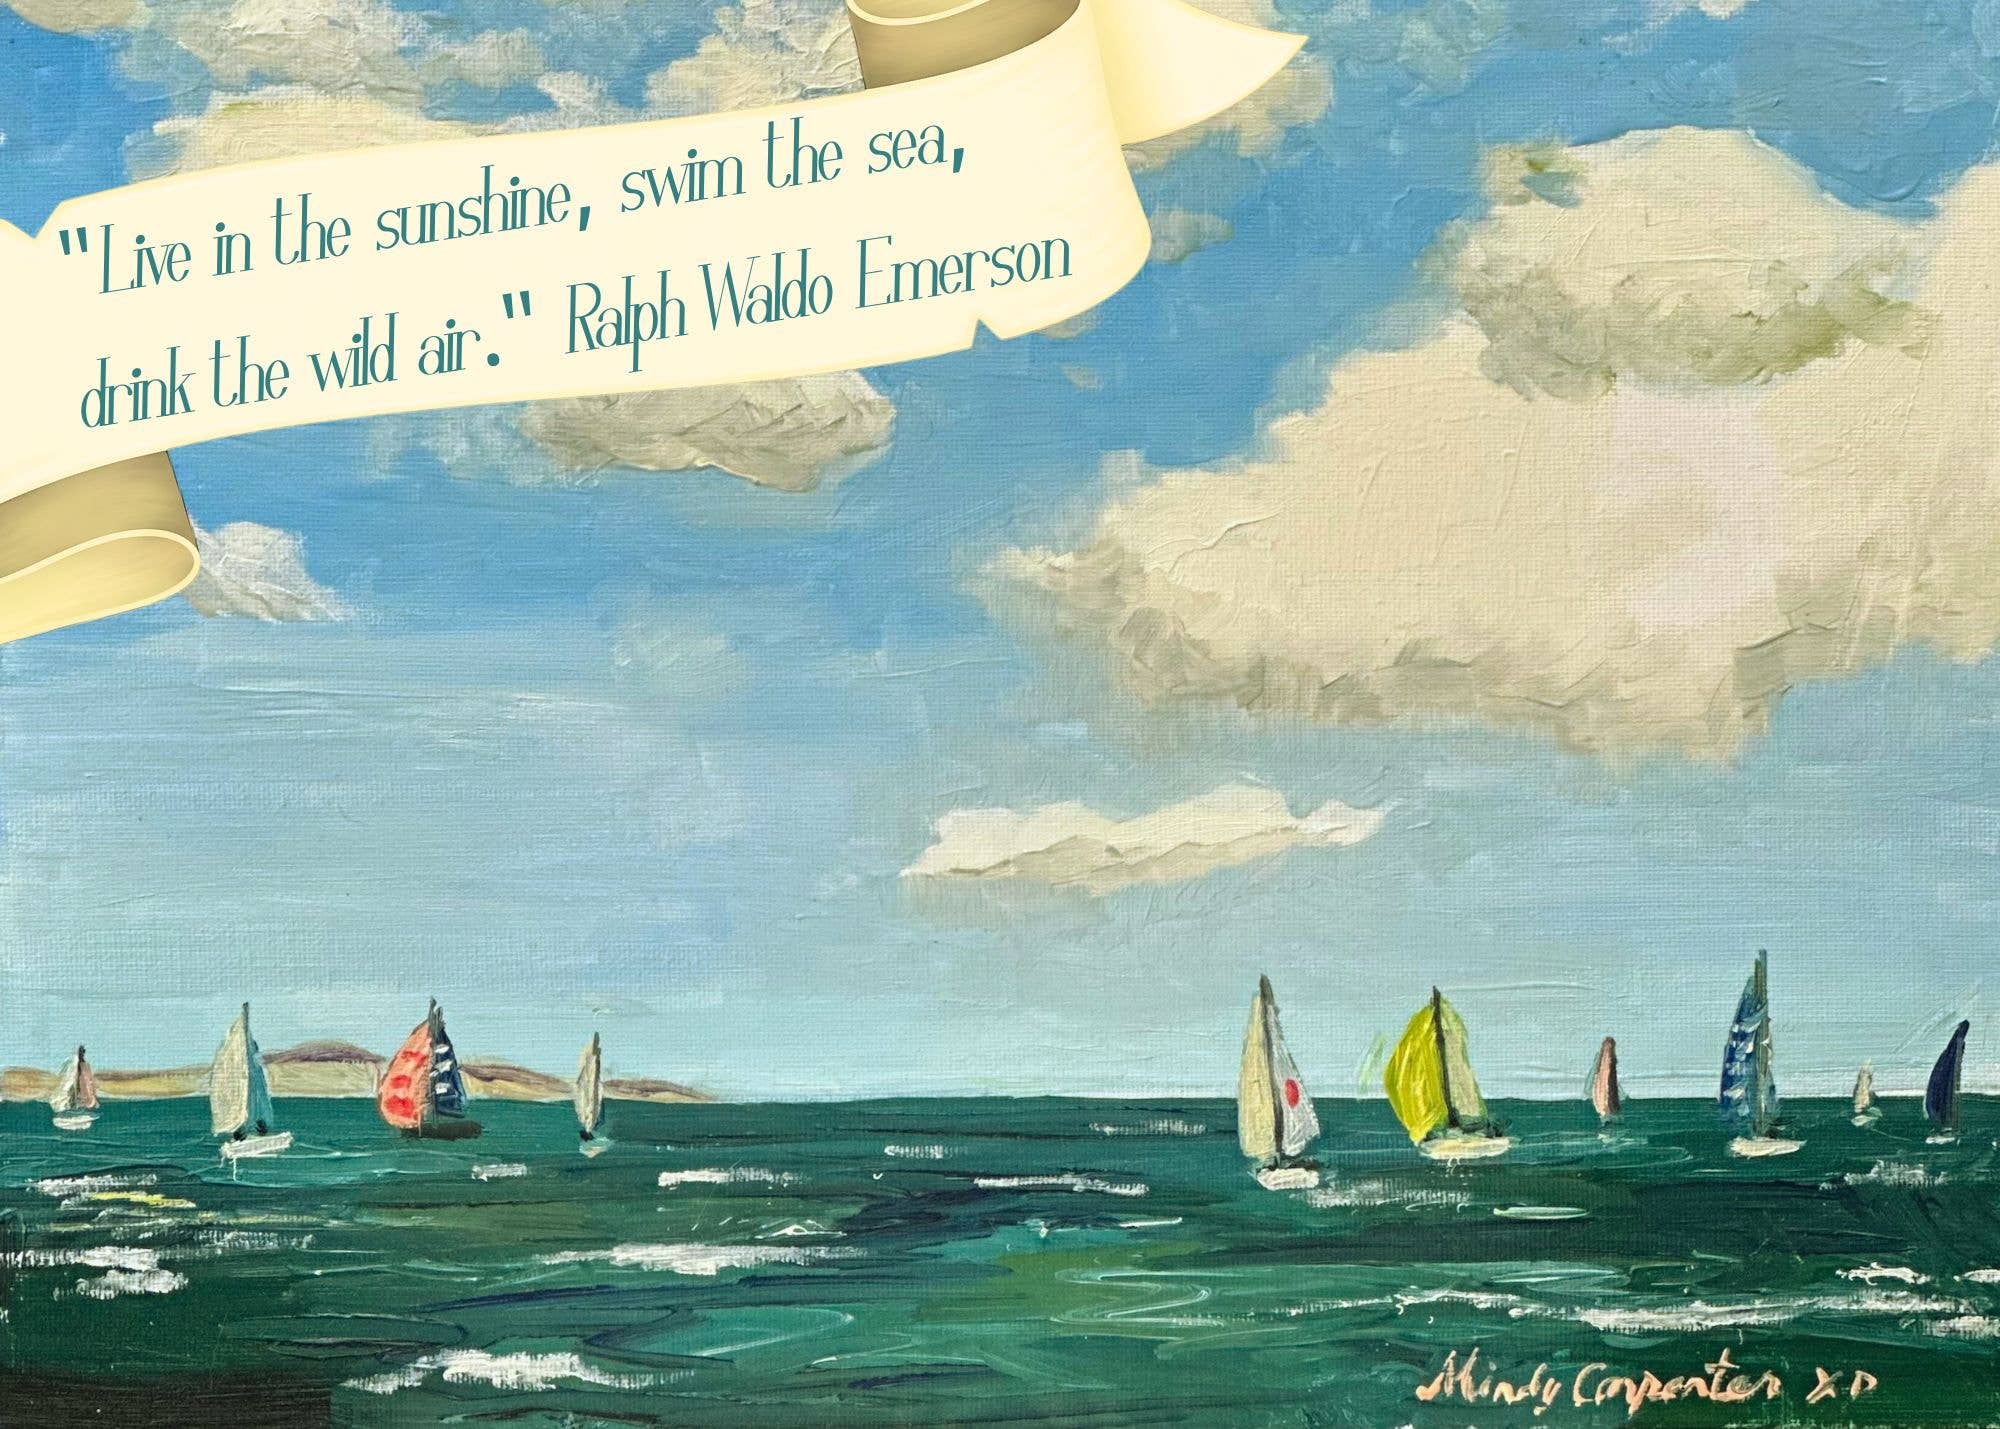 "Live in the sunshine, swim the sea,
drink the wild air." Ralph Waldo Emerson
Mindy Carpenter